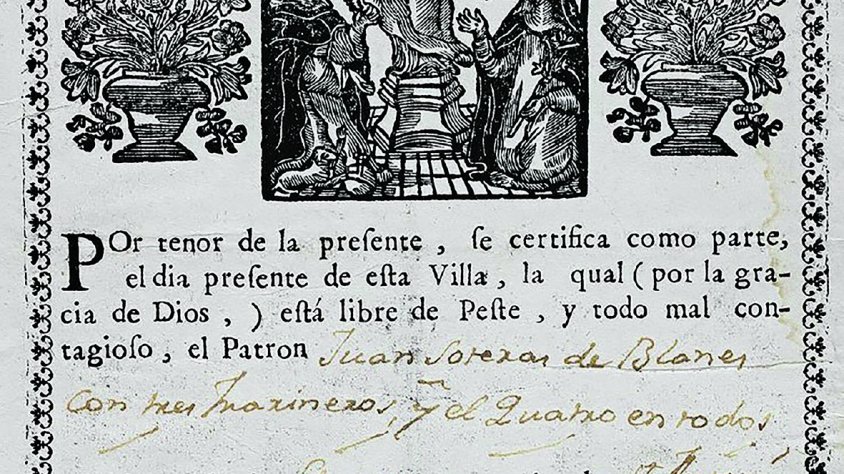 POr tenor de la preſente , ſe certifica como parte,
el dia preſente de eſta Villa, la qual ( por la gra-
cia de Dios , ) eſtá libre de Peſte , y todo mal con-
tagioſo , el Patron Juan Soreras de Blanes
con tres marineros, y el Quatro en todos